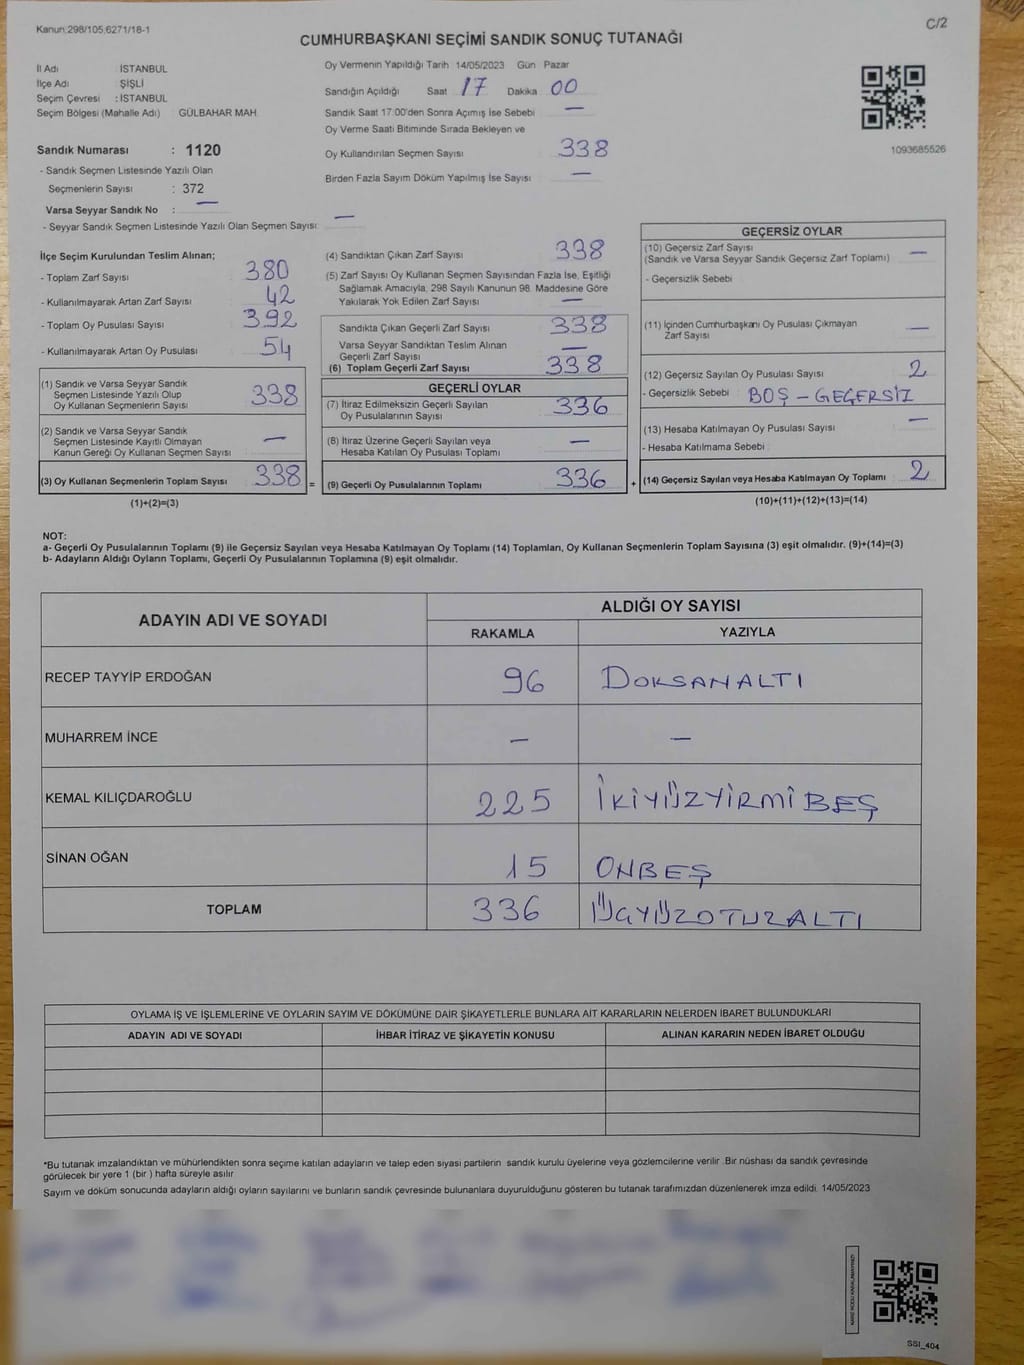 Kanun:298/105,6271/18-1
C/2
CUMHURBAŞKANI SEÇİMİ SANDIK SONUÇ TUTANAĞI
İl Adı : İSTANBUL
İlçe Adı : ŞİŞLİ
Seçim Çevresi : İSTANBUL
Seçim Bölgesi (Mahalle Adı) GÜLBAHAR MAH.
Sandık Numarası : 1120
- Sandık Seçmen Listesinde Yazılı Olan
Seçmenlerin Sayısı : 372
Varsa Seyyar Sandık No : —
- Seyyar Sandık Seçmen Listesinde Yazılı Olan Seçmen Sayısı: —
Oy Vermenin Yapıldığı Tarih 14/05/2023 Gün Pazar
Sandığın Açıldığı Saat 17 Dakika 00
Sandık Saat 17:00'den Sonra Açılmış İse Sebebi —
Oy Verme Saati Bitiminde Sırada Bekleyen ve
Oy Kullandırılan Seçmen Sayısı 338
Birden Fazla Sayım Döküm Yapılmış İse Sayısı —
1093685526
İlçe Seçim Kurulundan Teslim Alınan;
- Toplam Zarf Sayısı 380
- Kullanılmayarak Artan Zarf Sayısı 42
- Toplam Oy Pusulası Sayısı 392
- Kullanılmayarak Artan Oy Pusulası 54
(1) Sandık ve Varsa Seyyar Sandık
Seçmen Listesinde Yazılı Olup
Oy Kullanan Seçmenlerin Sayısı 338
(2) Sandık ve Varsa Seyyar Sandık
Seçmen Listesinde Kayıtlı Olmayan
Kanun Gereği Oy Kullanan Seçmen Sayısı —
(3) Oy Kullanan Seçmenlerin Toplam Sayısı 338 =
(1)+(2)=(3)
(4) Sandıktan Çıkan Zarf Sayısı 338
(5) Zarf Sayısı Oy Kullanan Seçmen Sayısından Fazla İse, Eşitliği
Sağlamak Amacıyla, 298 Sayılı Kanunun 98. Maddesine Göre
Yakılarak Yok Edilen Zarf Sayısı —
Sandıkta Çıkan Geçerli Zarf Sayısı 338
Varsa Seyyar Sandıktan Teslim Alınan
Geçerli Zarf Sayısı —
(6) Toplam Geçerli Zarf Sayısı 338
GEÇERLİ OYLAR
(7) İtiraz Edilmeksizin Geçerli Sayılan
Oy Pusulalarının Sayısı 336
(8) İtiraz Üzerine Geçerli Sayılan veya
Hesaba Katılan Oy Pusulası Toplamı —
(9) Geçerli Oy Pusulalarının Toplamı 336 +
GEÇERSİZ OYLAR
(10) Geçersiz Zarf Sayısı
(Sandık ve Varsa Seyyar Sandık Geçersiz Zarf Toplamı) —
- Geçersizlik Sebebi :
(11) İçinden Cumhurbaşkanı Oy Pusulası Çıkmayan
Zarf Sayısı —
(12) Geçersiz Sayılan Oy Pusulası Sayısı 2
- Geçersizlik Sebebi : BOŞ - GEÇERSİZ
(13) Hesaba Katılmayan Oy Pusulası Sayısı —
- Hesaba Katılmama Sebebi :
(14) Geçersiz Sayılan veya Hesaba Katılmayan Oy Toplamı 2
(10)+(11)+(12)+(13)=(14)
NOT:
a- Geçerli Oy Pusulalarının Toplamı (9) ile Geçersiz Sayılan veya Hesaba Katılmayan Oy Toplamı (14) Toplamları, Oy Kullanan Seçmenlerin Toplam Sayısına (3) eşit olmalıdır. (9)+(14)=(3)
b- Adayların Aldığı Oyların Toplamı, Geçerli Oy Pusulalarının Toplamına (9) eşit olmalıdır.
ADAYIN ADI VE SOYADI
ALDIĞI OY SAYISI
RAKAMLA YAZIYLA
RECEP TAYYİP ERDOĞAN 96 DOKSANALTI
MUHARREM İNCE — —
KEMAL KILIÇDAROĞLU 225 İKİYÜZYİRMİBEŞ
SİNAN OĞAN 15 ONBEŞ
TOPLAM 336 ÜÇYÜZOTUZALTI
OYLAMA İŞ VE İŞLEMLERİNE VE OYLARIN SAYIM VE DÖKÜMÜNE DAİR ŞİKAYETLERLE BUNLARA AİT KARARLARIN NELERDEN İBARET BULUNDUKLARI
ADAYIN ADI VE SOYADI İHBAR İTİRAZ VE ŞİKAYETİN KONUSU ALINAN KARARIN NEDEN İBARET OLDUĞU
*Bu tutanak imzalandıktan ve mühürlendikten sonra seçime katılan adayların ve talep eden siyasi partilerin sandık kurulu üyelerine veya gözlemcilerine verilir. Bir nüshası da sandık çevresinde
görülecek bir yere 1 (bir) hafta süreyle asılır
Sayım ve döküm sonucunda adayların aldığı oyların sayılarını ve bunların sandık çevresinde bulunanlara duyurulduğunu gösteren bu tutanak tarafımızdan düzenlenerek imza edildi. 14/05/2023
SSI_404